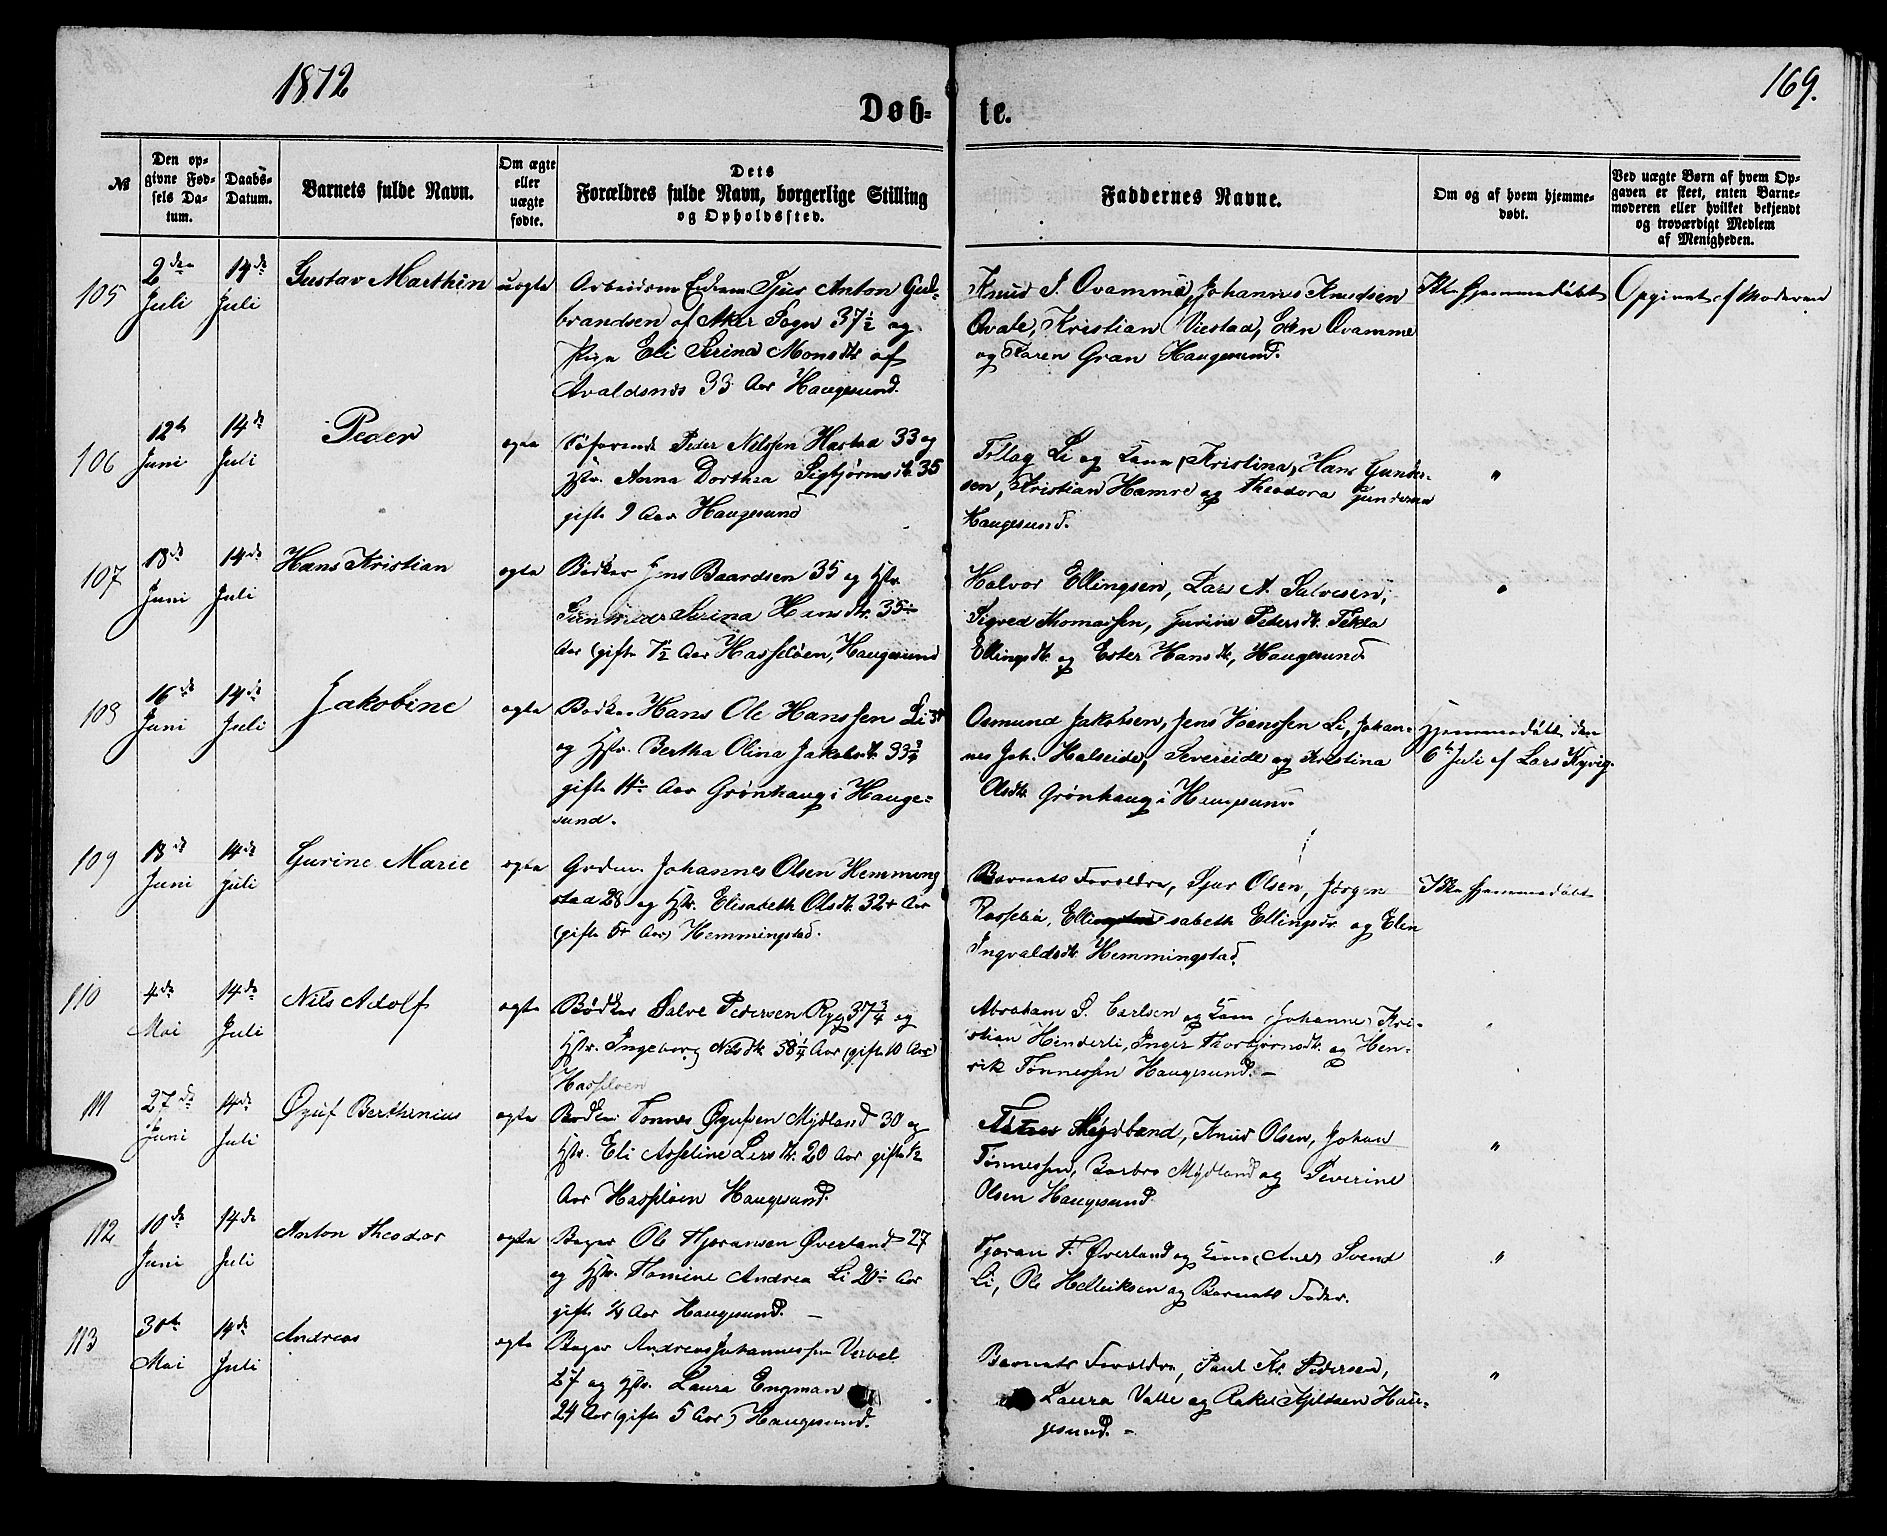 1872
169.
Døb-
te.
№
Den op-
givne Fød-
sels Da-
tum.
Daabs-
Datum.
Barnets fulde Navn.
Om ægte
eller
uægte
fødte.
Dets
Forældres fulde Navn, borgerlige Stilling
og Opholdssted.
Faddernes Navne.
Om og af hvem hjemme-
døbt.
Ved uægte Børn af hvem Op-
gaven er skeet, enten Barne-
moderen eller hvilket bekjendt
og troværdigt Medlem
af Menigheden.
105
2den
Juli
14de
Juli
Gustav Marthin
uægte
Arbeidsm Sjur Anton Gul-
brandsen af Aker Sogn 37½ og
Pige Eli Serina Monsdtr af
Avaldsnes 33 Aar Haugesund.
Knud J. Qvamme, Johannes Knudsen
Qvale, Kristian Viestad, Qvamme
og Karen Gran Haugesund.
Ikke hjemmedøbt
Opgivet af Moderen
106
12te
Juni
14de
Juli
Peder
ægte
Søfarende Peder Nilssen Hastad 33 og
Hstr. Anna Dorthea Sigbjørnsdtr 35
gifte 9 Aar Haugesund
Tollag Li og Kona Kristina, Hans Gunder-
sen, Kristian Hamre og Theodora Gundersen
Haugesund.
"
107
18de
Juni
14de
Juli
Hans Kristian
ægte
Bødker Jens Baardsen 35 og Hstr.
Serina 35
Aar (gifte 7½ Aar Hasseløen, Haugesund
Halvor Ellingsen, Lars A. Salvesen,
Sigved Thomassen, Gurine Pedersdtr. Tekla
Ellingsdtr. og Ester Hansdtr, Haugesund.
"
108
16de
Juni
14de
Juli
Jakobine
ægte
Bødker Hans Ole Hanssen Li
og Hstr. Bertha Olina Jakobsdtr. 33¾
gifte Aar Grønhaug i Hauge-
sund.
Osmund Jakobsen, Jens Hanssen Li, Johan-
nes Joh. Halseide, Severeide og Kristina
Olsdtr Grønhaug i Haugesund.
Hjemmedøbt den
6te Juli af Lars Kyvig.
109
18de
Juni
14de
Juli
Gurine Marie
ægte
Grdm. Johannes Olsen Hemming
stad 28 og Hstr. Elisabeth Olsdtr. 32 Aar
(gifte Aar) Hemmingstad.
Barnets Foreldre, Sjur Olsen, Jørgen
sabeth Ellingsdr. og Elen
Ingvaldsdtr. Hemmingstad.
Ikke hjemmedøbt
110
4de
Mai
14de
Juli
Nils Adolf
ægte
Bødker Salve Pedersen Ryg 37¾ og
Hstr. Ingeborg Nilsdtr. 38¼ Aar (gifte 10 Aar)
Hasseløen
Abraham S. Carlsen og Kona Johanne, Kri-
stian Henderli, Inger Thorbjørnsdtr. og Hen-
rik Tønnessen Haugesund. –
"
111
27de
Juni
14de
Juli
Øguf Berthinius
ægte
Bødker Tønnes Øgufsen Mydland 30 og
Hstr. Eli Asseline Larsdtr. 20 Aar gifte ½
Aar Hasseløen Haugesund.
Mydland, Knud Olsen, Johan
Tønnessen, Barbro Mydland og Severine
Olsen Haugesund.
"
112
10de
Juni
14de
Juli
Anton Theodor
ægte
Bager Ole Tjøransen Øverland 27
og Hstr. Tomine Andrea Li 20 Aar
gifte Aar Haugesund. –
Tjøran T. Øverland og Kona, Svend
Li, Ole Helleriksen og Barnets Fader.
"
113
30te
Mai
14de
Juli
Andreas
ægte
Bager Andreas Johannessen
27 og Hstr. Laura Engman
24 Aar (gifte 5 Aar) Haugesund.
Barnets Foreldre, Paul Kr. Pedersen,
Laura Valle og Rakel Kjeldsen Hau-
gesund. –
"